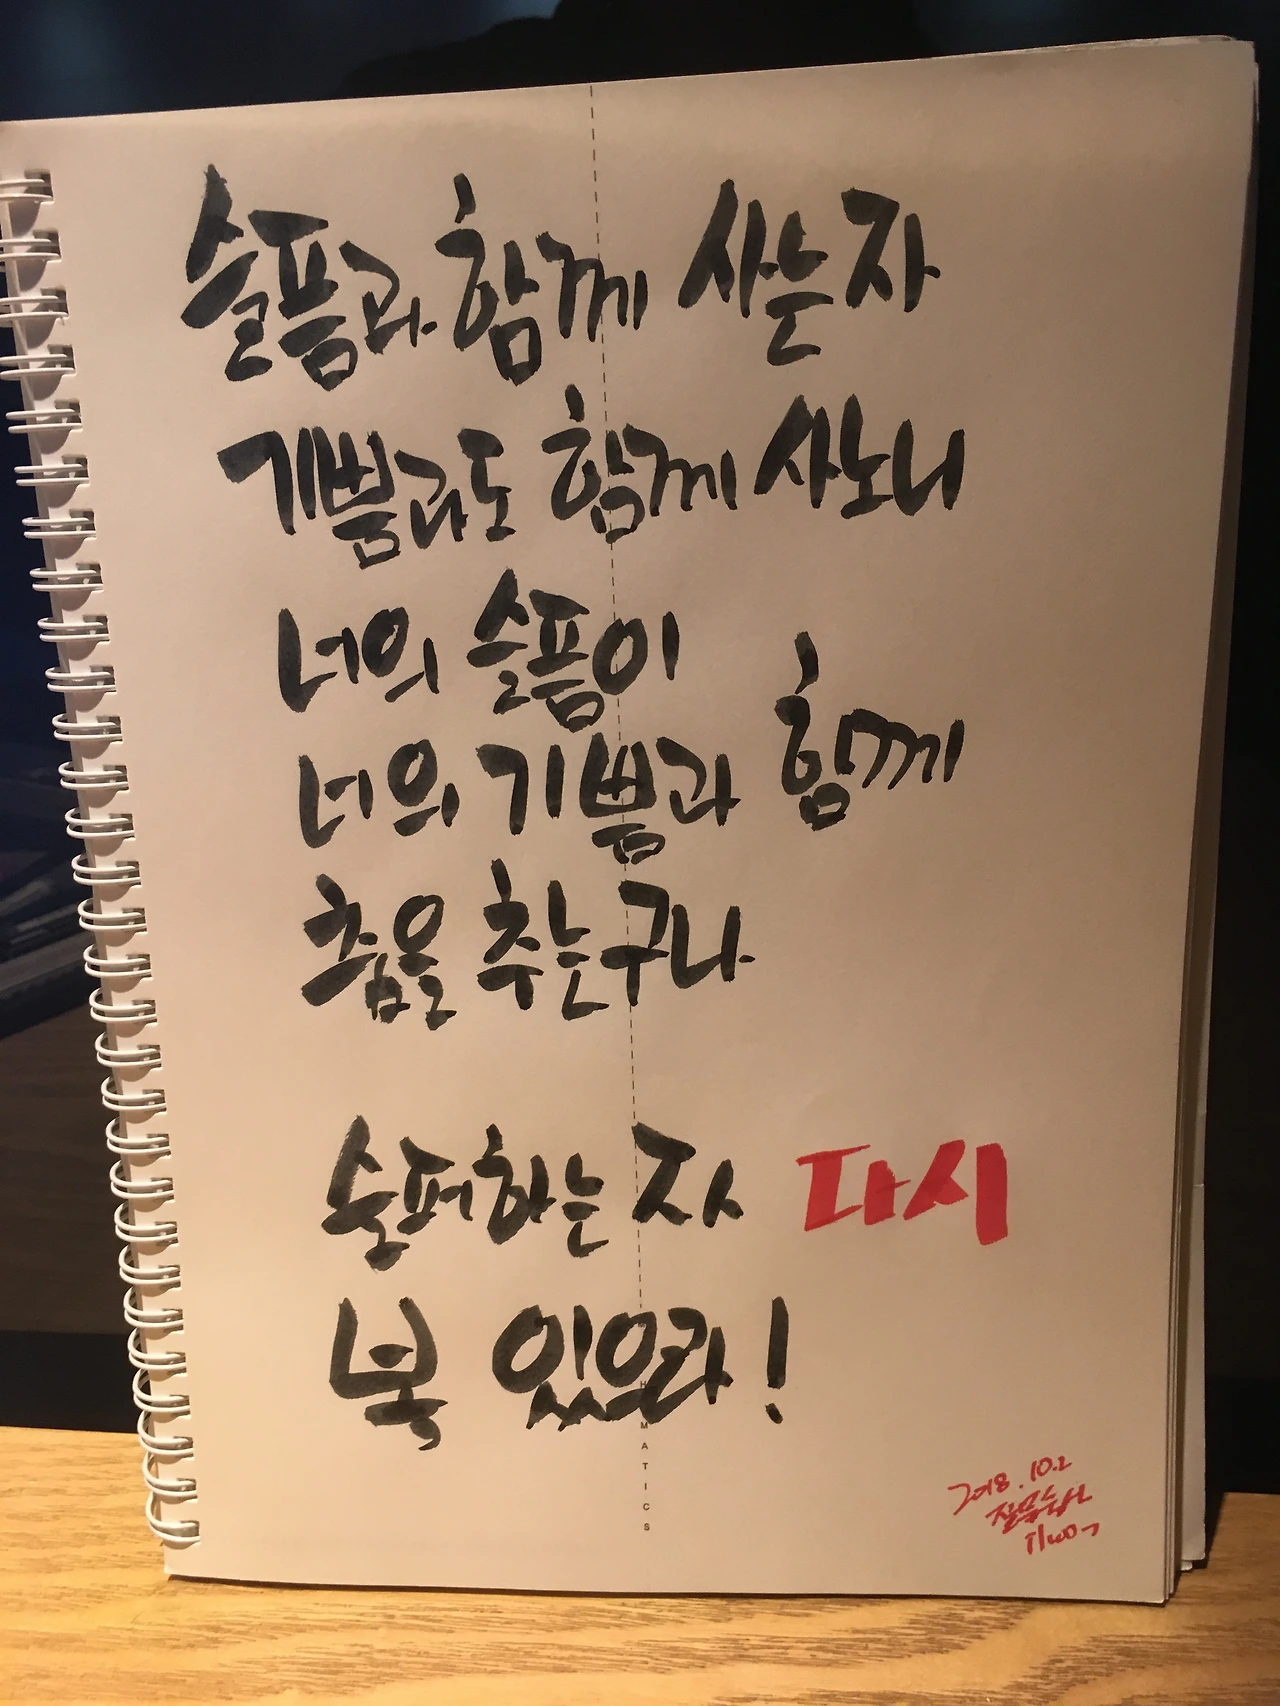 슬픔과 함께 사는 자
기쁨과도 함께 사노니
너의 슬픔이
너의 기쁨과 함께
춤을 추는구나
슬퍼하는 자 다시
복 있으라!
MATICS
2018.10.2